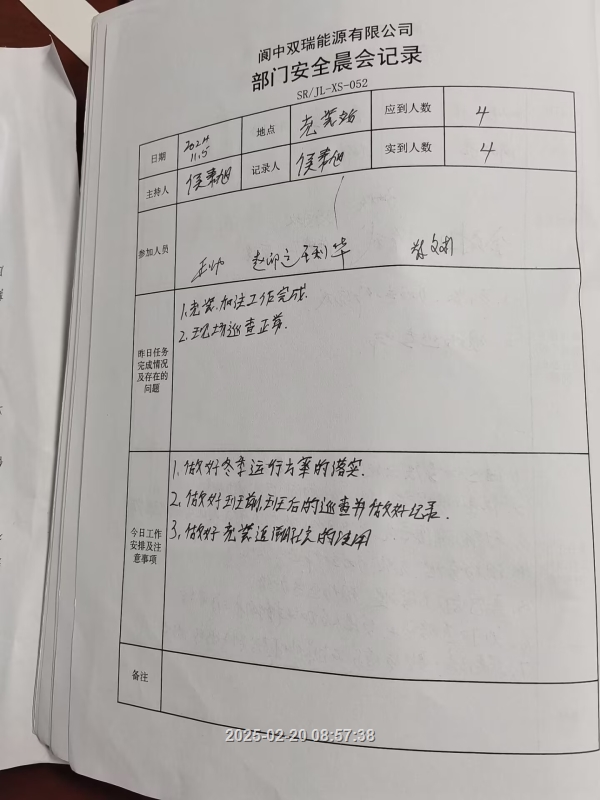 阆中双瑞能源有限公司
部门安全晨会记录
SR/JL-XS-052
日期
2024
11.5
地点
充装站
应到人数
4
主持人
记录人
实到人数
4
参加人员
昨日任务
完成情况
及存在的
问题
1.充装.加注工作完成.
2.现场巡查正常.
今日工作
安排及注
意事项
1.做好冬季运行方案的落实.
2.做好班前,班后的巡查并做好记录.
3.做好充装
的使用
备注
2025-02-20 08:57:38